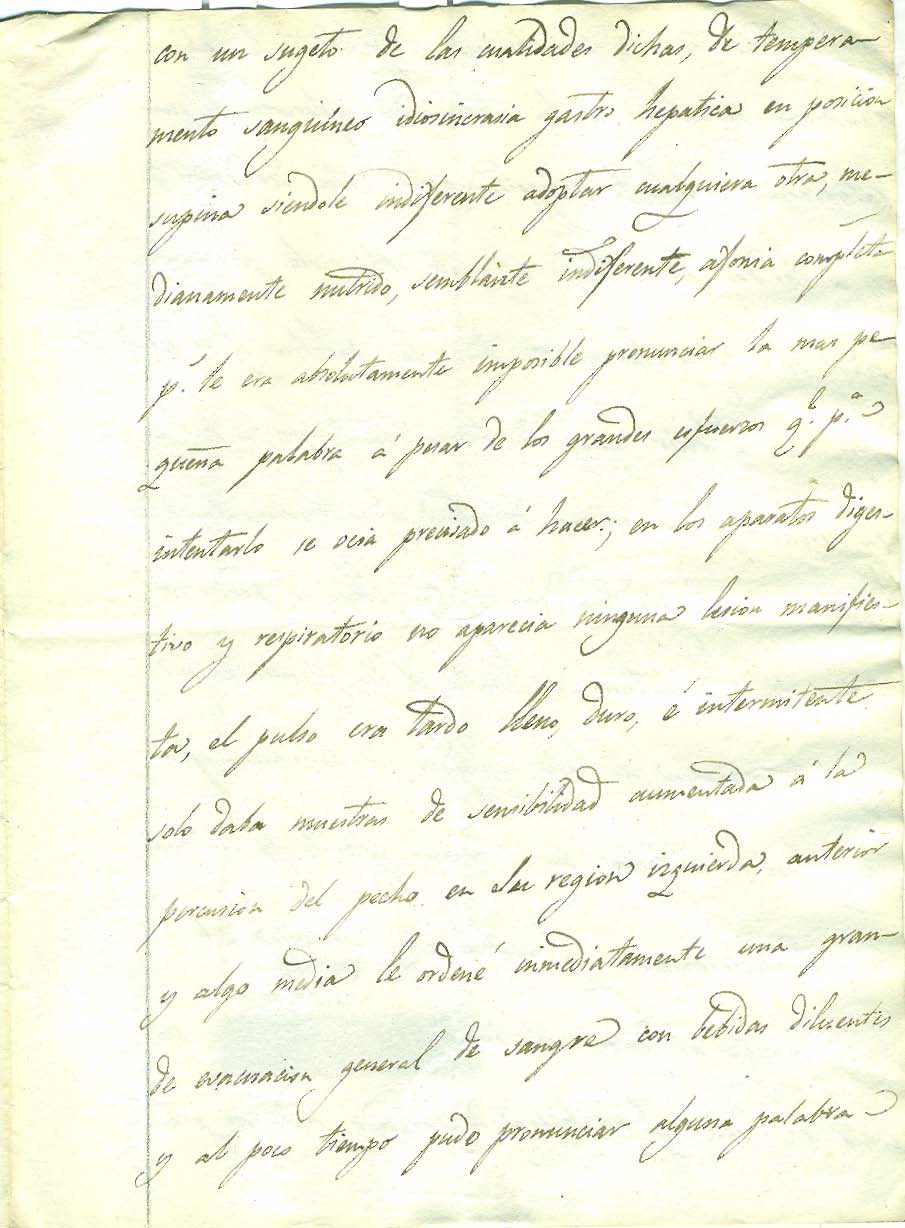 con un sugeto de las cualidades dichas, de tempera-
mento sanguíneo idiosincrasia gastro hepatica en posicion
supina siendole indiferente adoptar cualquiera otra, me-
dianamente nutrido, semblante indiferente, afonia completa
p.^s le era absolutamente imposible pronunciar la mas pe-
queña palabra á pesar de los grandes esfuerzos q.^e p.^a
intentarlo se veia precisado á hacer; en los aparatos diges-
tivo y respiratorio no aparecia ninguna lesion manifies-
ta, el pulso era tardo lleno, duro, é intermitente
solo daba muestras de sensibilidad aumentada á la
percusion del pecho en su region izquierda, anterior
y algo media le ordené inmediatamente una gran-
de evacuacion general de sangre con bebidas diluentes
y al poco tiempo pudo pronunciar alguna palabra